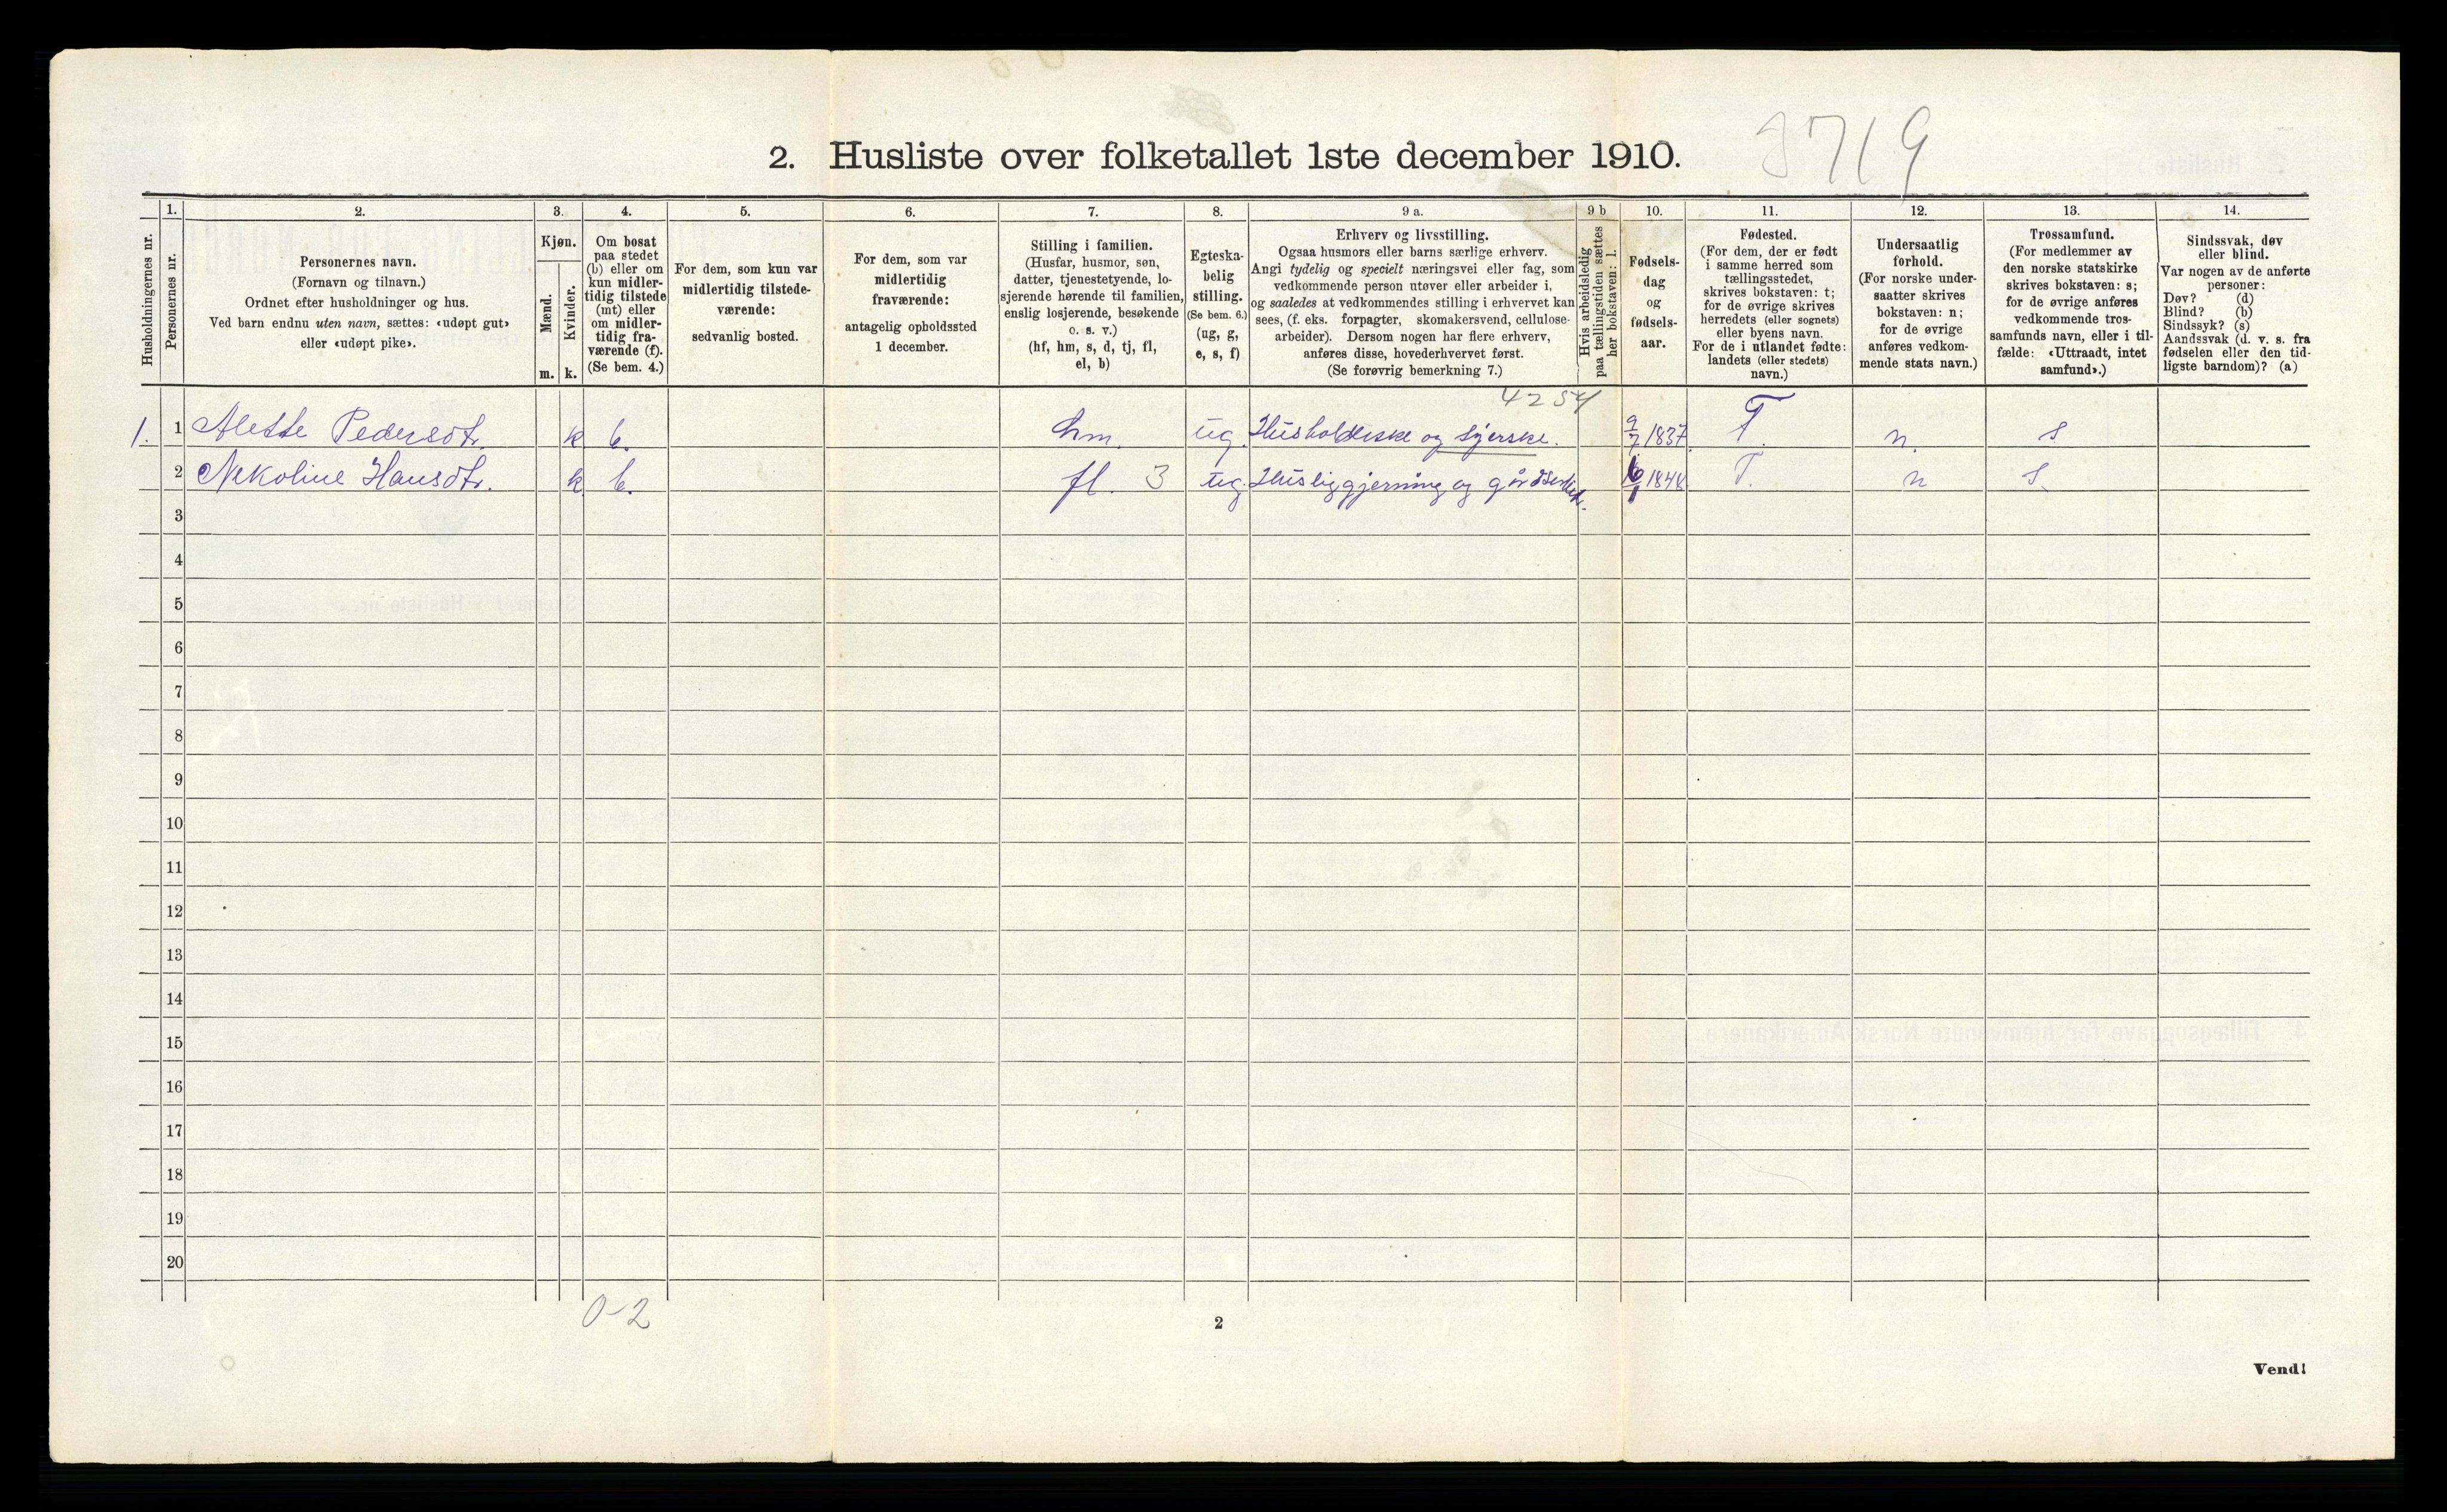 2. Husliste over folketallet 1ste december 1910.
3719
Husholdningernes nr.
1.
Personernes nr.
2.
Personernes navn.
(Fornavn og tilnavn.)
Ordnet efter husholdninger og hus.
Ved barn endnu uten navn, sættes: «udøpt gut»
eller «udøpt pike».
3.
Kjøn.
Mænd.
Kvinder.
m. k.
4.
Om bosat
paa stedet
(b) eller om
kun midler-
tidig tilstede
(mt) eller
om midler-
tidig fra-
værende (f).
(Se bem. 4.)
5.
For dem, som kun var
midlertidig tilstede-
værende:
sedvanlig bosted.
6.
For dem, som var
midlertidig
fraværende:
antagelig opholdssted
1 december.
7.
Stilling i familien.
(Husfar, husmor, søn,
datter, tjenestetyende, lo-
sjerende hørende til familien,
enslig losjerende, besøkende
o. s. v.)
(hf, hm, s, d, tj, fl,
el, b)
8.
Egteska-
belig
stilling.
(Se bem. 6.)
(ug, g,
e, s, f)
9 a.
Erhverv og livsstilling.
Ogsaa husmors eller barns særlige erhverv.
Angi tydelig og specielt næringsvei eller fag, som
vedkommende person utøver eller arbeider i,
og saaledes at vedkommendes stilling i erhvervet kan
sees, (f. eks. forpagter, skomakersvend, cellulose-
arbeider). Dersom nogen har flere erhverv,
anføres disse, hovederhvervet først.
(Se forøvrig bemerkning 7.)
9 b
Hvis arbeidsledig
paa tællingstiden sættes
her bokstaven: l.
10.
Fødsels-
dag
og
fødsels-
aar.
11.
Fødested.
(For dem, der er født
i samme herred som
tællingsstedet,
skrives bokstaven: t;
for de øvrige skrives
herredets (eller sognets)
eller byens navn.
For de i utlandet fødte:
landets (eller stedets)
navn.)
12.
Undersaatlig
forhold.
(For norske under-
saatter skrives
bokstaven: n;
for de øvrige
anføres vedkom-
mende stats navn.)
13.
Trossamfund.
(For medlemmer av
den norske statskirke
skrives bokstaven: s;
for de øvrige anføres
vedkommende tros-
samfunds navn, eller i til-
fælde: «Uttraadt, intet
samfund».)
14.
Sindssvak, døv
eller blind.
Var nogen av de anførte
personer:
Døv? (d)
Blind? (b)
Sindssyk? (s)
Aandssvak (d. v. s. fra
fødselen eller den tid-
ligste barndom)? (a)
4254
1. 1 Alette Pedersdtr. k b. hm. ug. Husholderske og syerske. 9/7 1837 T. n. s
2 Nekoline Hansdtr. k b. fl. 3 ug. Huslig gjerning og 1848 T. n s.
3
4
5
6
7
8
9
10
11
12
13
14
15
16
17
18
19
20
0-2
2
Vend!